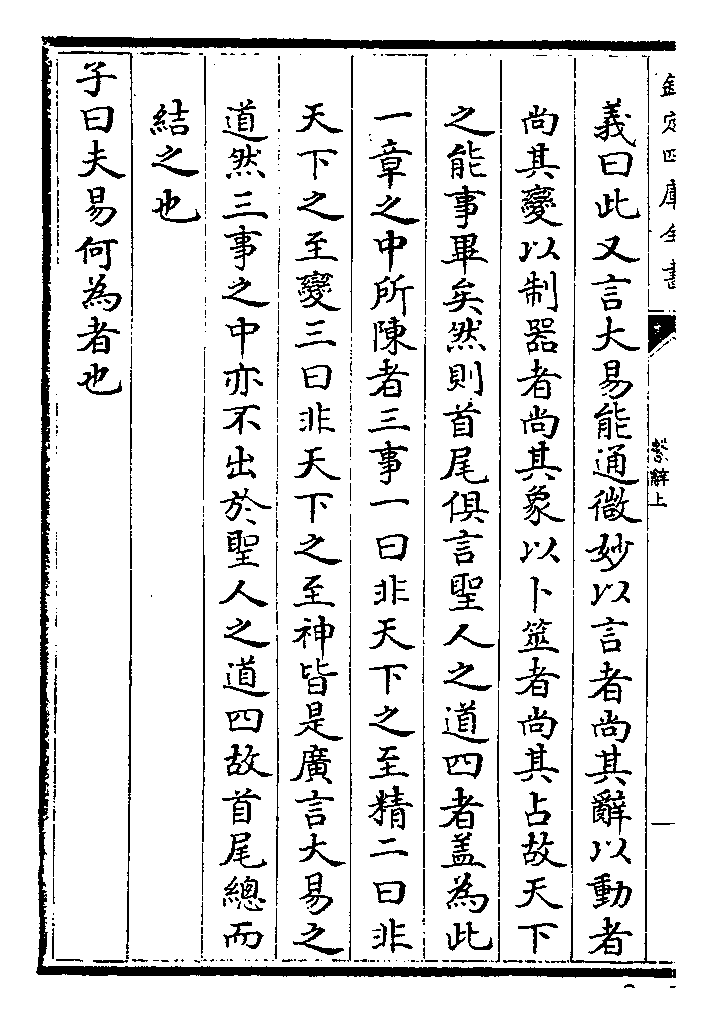 欽定四庫全書
繫辭上
義曰此又言大易能通微妙以言者尚其辭以動者
尚其變以制器者尚其象以卜筮者尚其占故天下
之能事畢矣然則首尾俱言聖人之道四者盖為此
一章之中所陳者三事一曰非天下之至精二曰非
天下之至變三曰非天下之至神皆是廣言大易之
道然三事之中亦不出於聖人之道四故首尾總而
結之也
子曰夫易何為者也